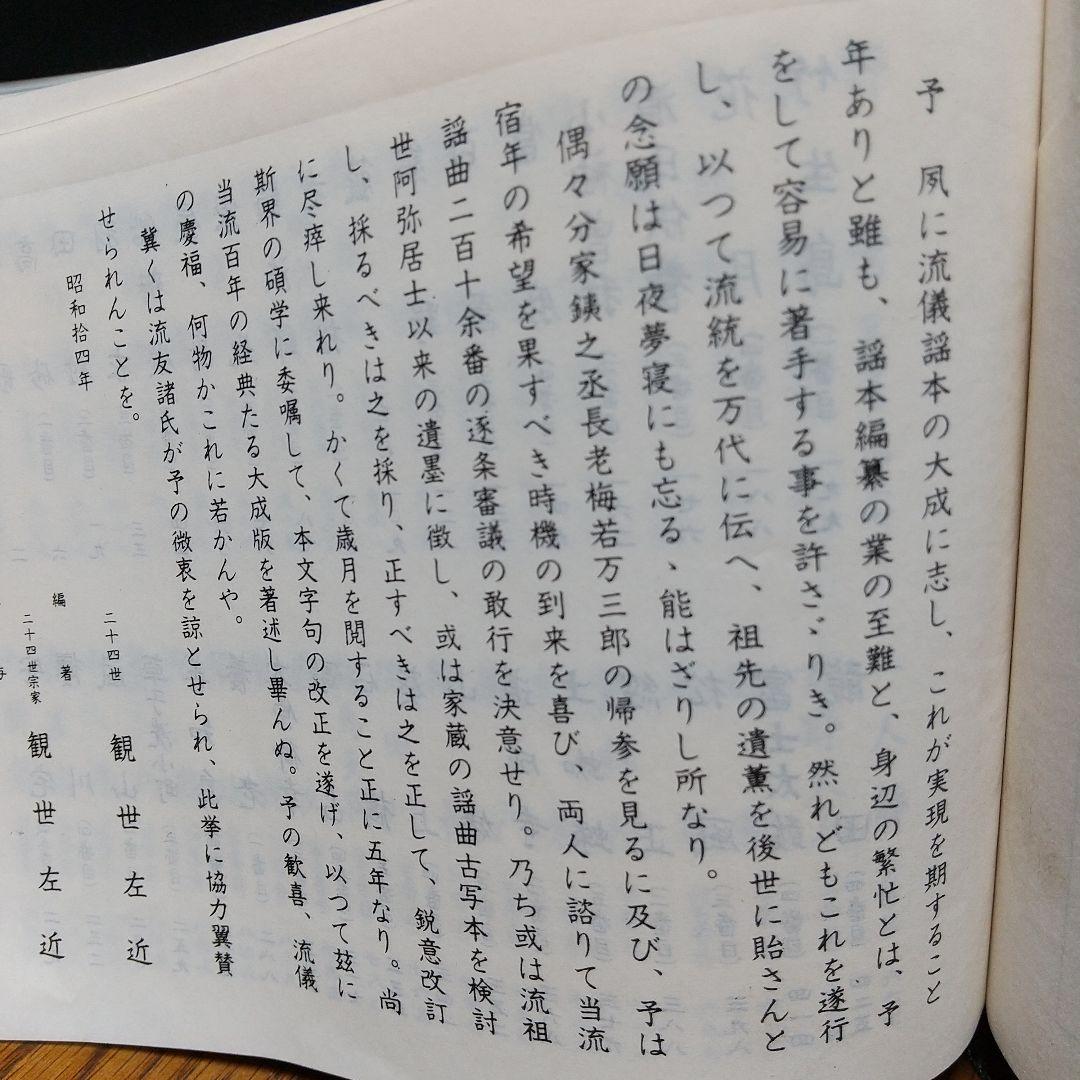 予　夙に流儀謡本の大成に志し、これが実現を期すること
年ありと雖も、謡本編纂の業の至難と、身辺の繁忙とは、予
をして容易に著手する事を許さゞりき。然れどもこれを遂行
し、以つて流統を万代に伝へ、祖先の遺薫を後世に貽さんと
の念願は日夜夢寝にも忘るゝ能はざりし所なり。
偶々分家銕之丞長老梅若万三郎の帰参を見るに及び、予は
宿年の希望を果すべき時機の到来を喜び、両人に諮りて当流
謡曲二百十余番の逐条審議の敢行を決意せり。乃ち或は流祖
世阿弥居士以来の遺墨に徴し、或は家蔵の謡曲古写本を検討
し、採るべきは之を採り、正すべきは之を正して、鋭意改訂
に尽瘁し来れり。かくて歳月を閲すること正に五年なり。尚
斯界の碩学に委嘱して、本文字句の改正を遂げ、以つて玆に
当流百年の経典たる大成版を著述し畢んぬ。予の歓喜、流儀
の慶福、何物かこれに若かんや。
冀くは流友諸氏が予の微衷を諒とせられ、此挙に協力翼賛
せられんことを。
昭和拾四年
二十四世　観世左近
編著
二十四世宗家　観世左近